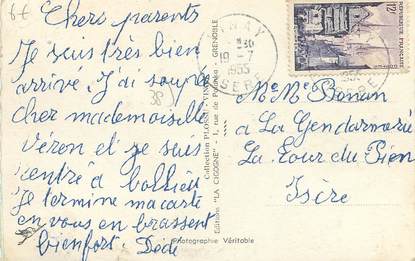 6€
Chers parents
Je suis très bien
arrivé. J'ai soupé
cher mademoiselle
Véron et je suis
rentré à
Je termine ma carte
en vous en brassent
bienfort. Dédé
38
Collection PLOISSI-TINES
Editions "LA CIGOGNE" - 1, rue de - GRENOBLE
Photographie Véritable
30
19 - 7
1955
ISERE
12F
REPUBLIQUE FRANÇAISE
Mr Me Bonan
à La Gendarmerie
La Tour du Pien
Isère